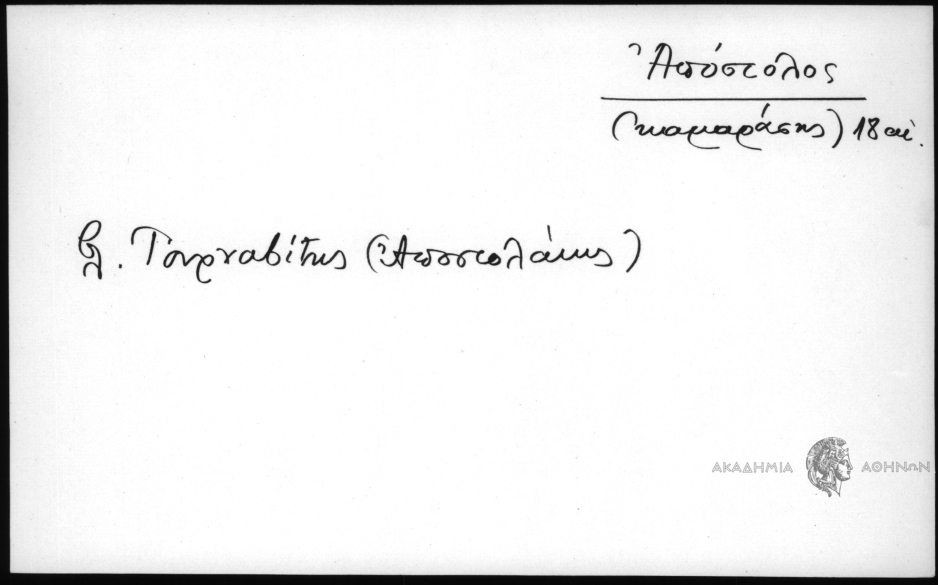 Ἀπόστολος
(καμαράσης) 18 αἰ.
βλ. Τουρναβίτης (Ἀποστολάκης)
ΑΚΑΔΗΜΙΑ ΑΘΗΝΩΝ